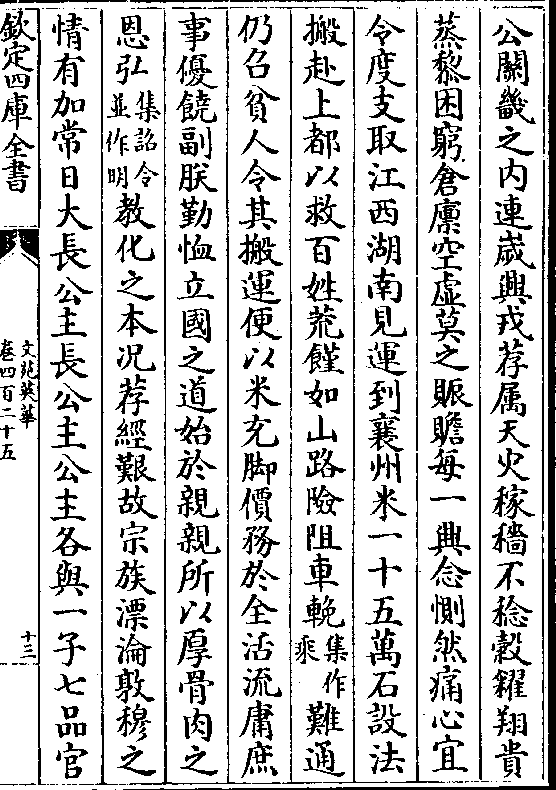 公關畿之内連歲興戎荐属天火稼穡不稔穀糴翔貴
蒸黎困窮倉廪空虚莫之賑贍每一興念惻然痛心宜
令度支取江西湖南見運到襄州米一十五萬石設法
搬赴上都以救百姓荒饉如山路險阻車輓集作乘難通
仍召貧人令其搬運便以米充脚價務於全活流庸庶
事優饒副朕勤恤立國之道始於親親所以厚骨肉之
恩弘集詔令並作明教化之本况荐經艱故宗族漂淪敦穆之
情有加常日大長公主長公主公主各與一子七品官
欽定四庫全書
文苑英華
卷四百二十五
十三